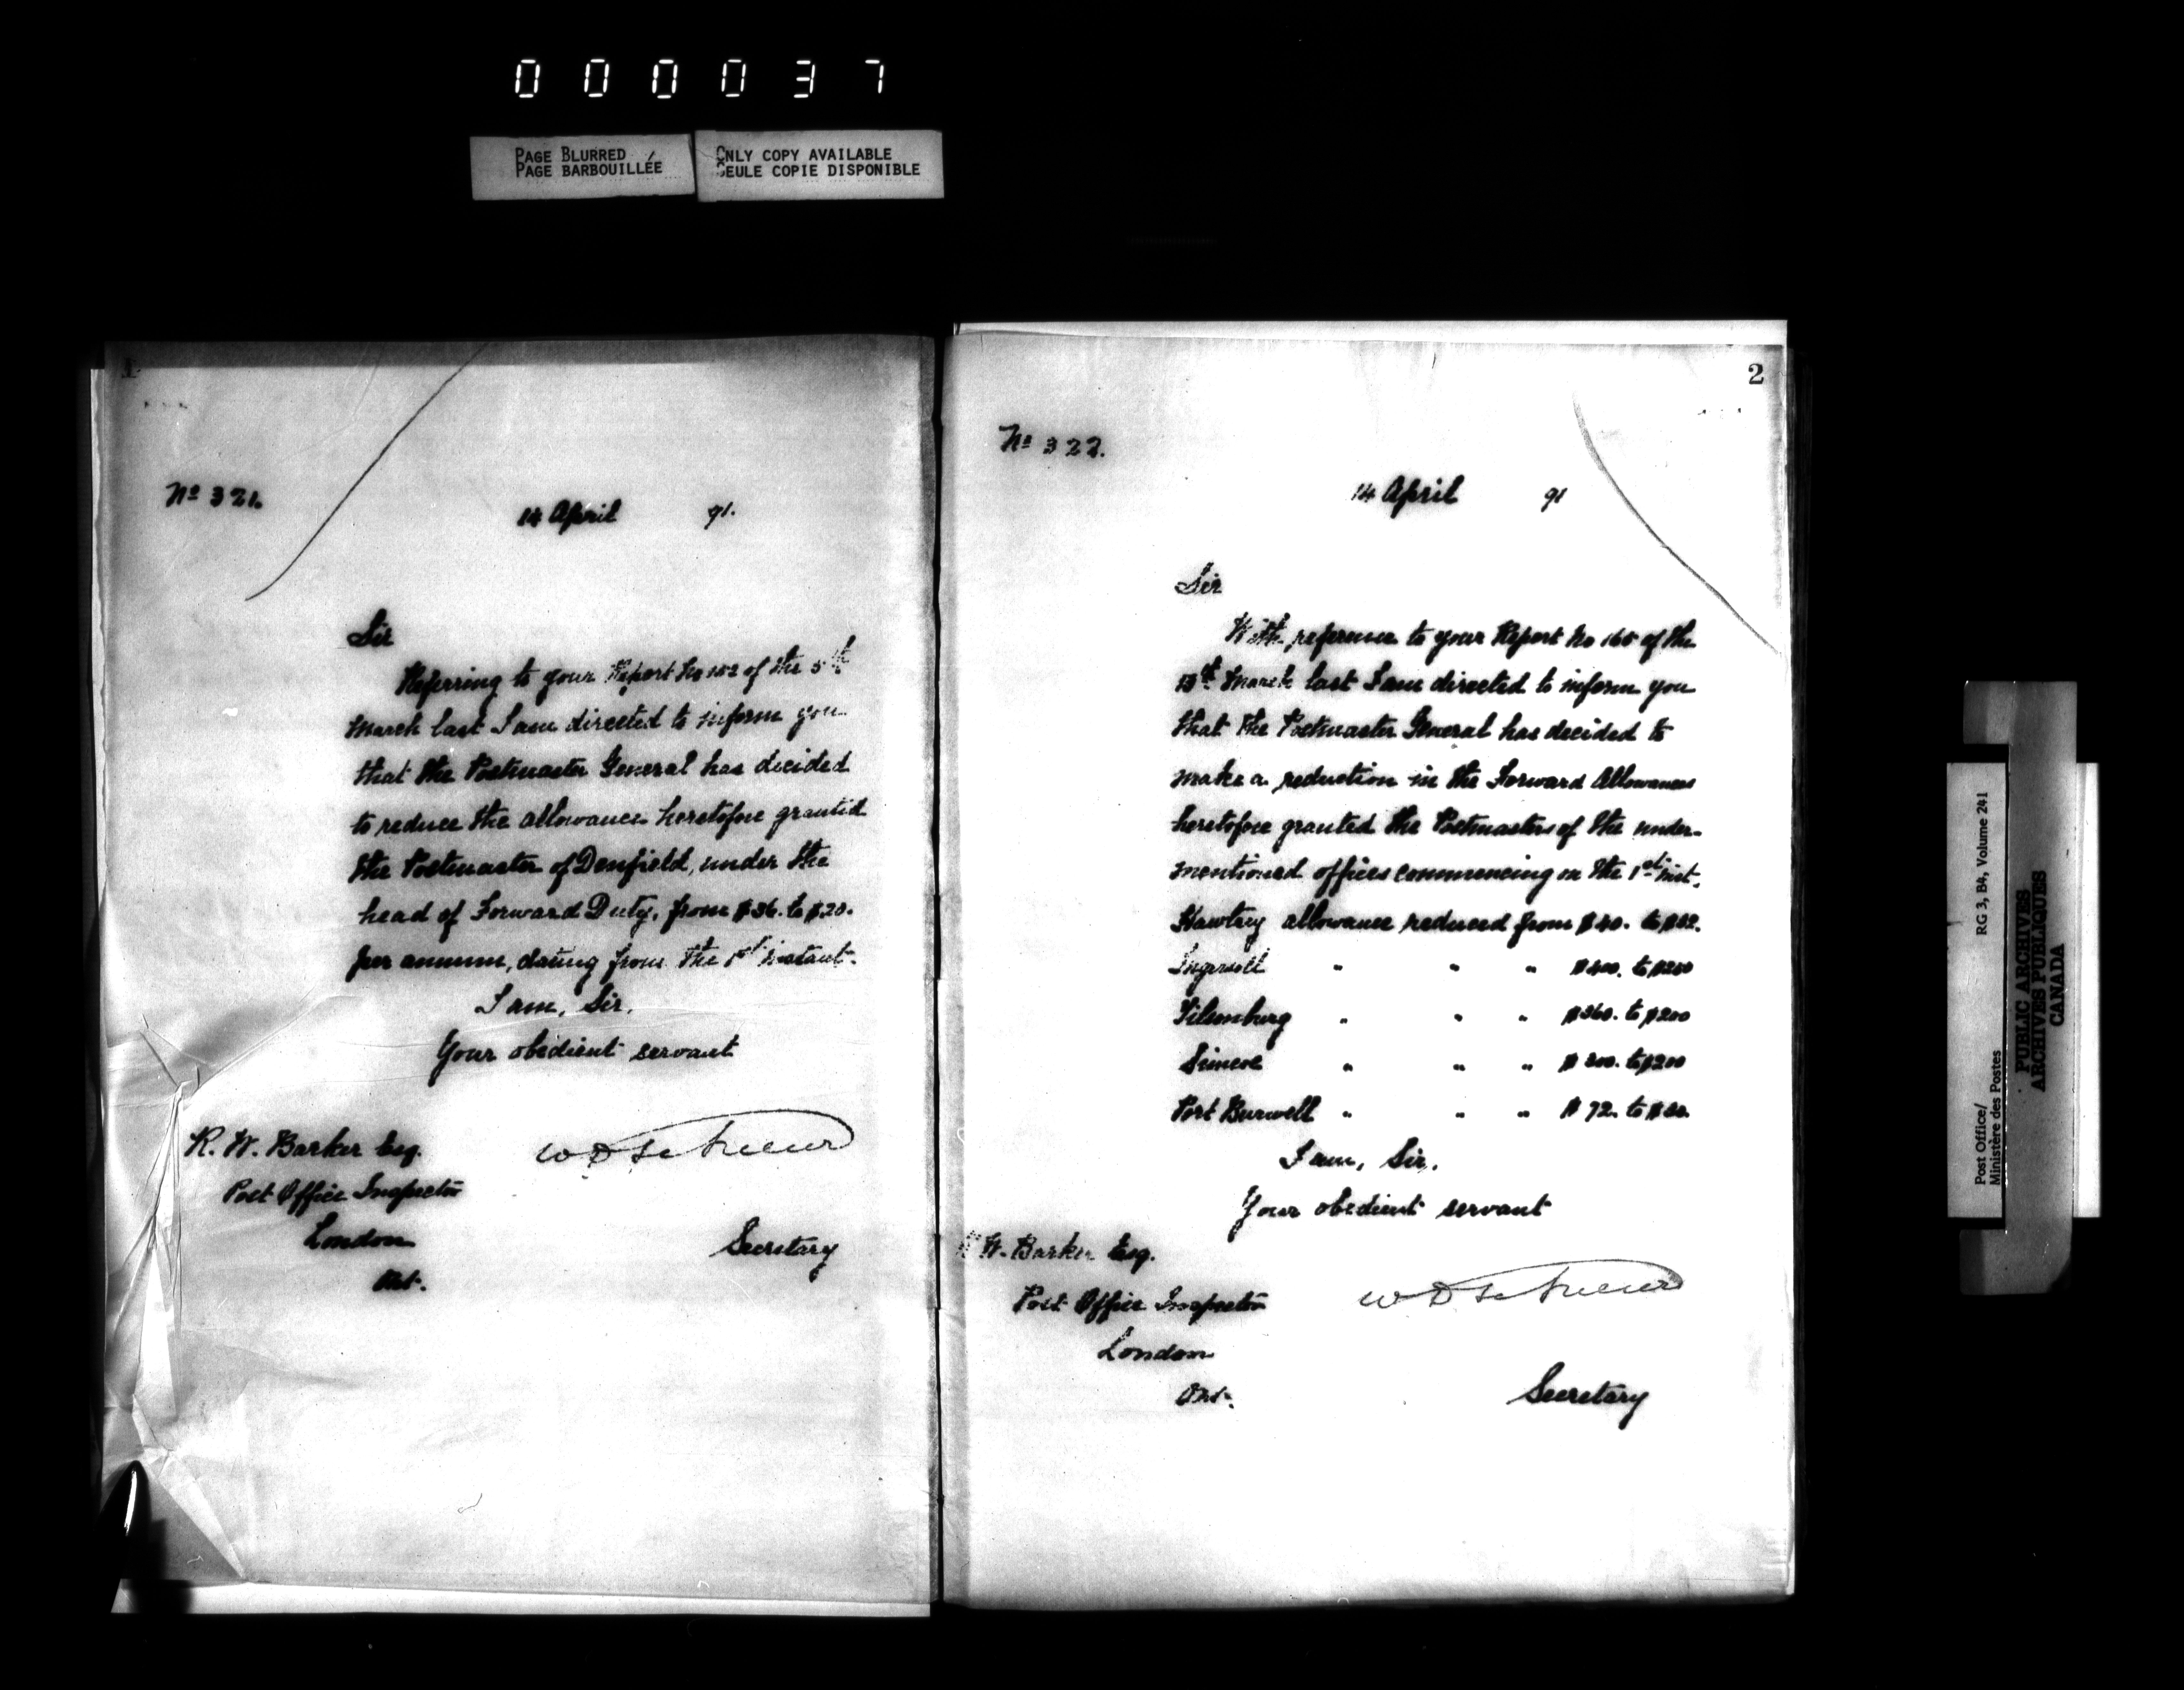 000037
PAGE BLURRED
PAGE BARBOUILLÉE
ONLY COPY AVAILABLE
SEULE COPIE DISPONIBLE
1
No 321.
14 April 91.
Sir
Referring to your Report No 152 of the 5th
March last I am directed to inform you
that the Postmaster General has decided
to reduce the allowance heretofore granted
the Postmaster of Denfield, under the
head of Forward Duty, from $36. to $20.
per annum, dating from the 1st instant.
I am, Sir,
Your obedient servant
R. W. Barker Esq.
Post Office Inspector
London
Ont.
Secretary
2
No 322.
14 April 91
Sir
With reference to your Report No 165 of the
13th March last I am directed to inform you
that the Postmaster General has decided to
make a reduction in the Forward Allowances
heretofore granted the Postmasters of the under-
mentioned offices commencing on the 1st inst.
Hawtrey allowance reduced from $40. to
Ingersoll " " " $400. to
Tilsonburg " " " $360. to $200
Simcoe " " " $300. to $200
Port Burwell " " " $72. to
I am, Sir,
Your obedient servant
W. Barker Esq.
Post Office Inspector
London
Ont.
Secretary
Post Office/
Ministère des Postes
RG 3, B4, Volume 241
PUBLIC ARCHIVES
ARCHIVES PUBLIQUES
CANADA